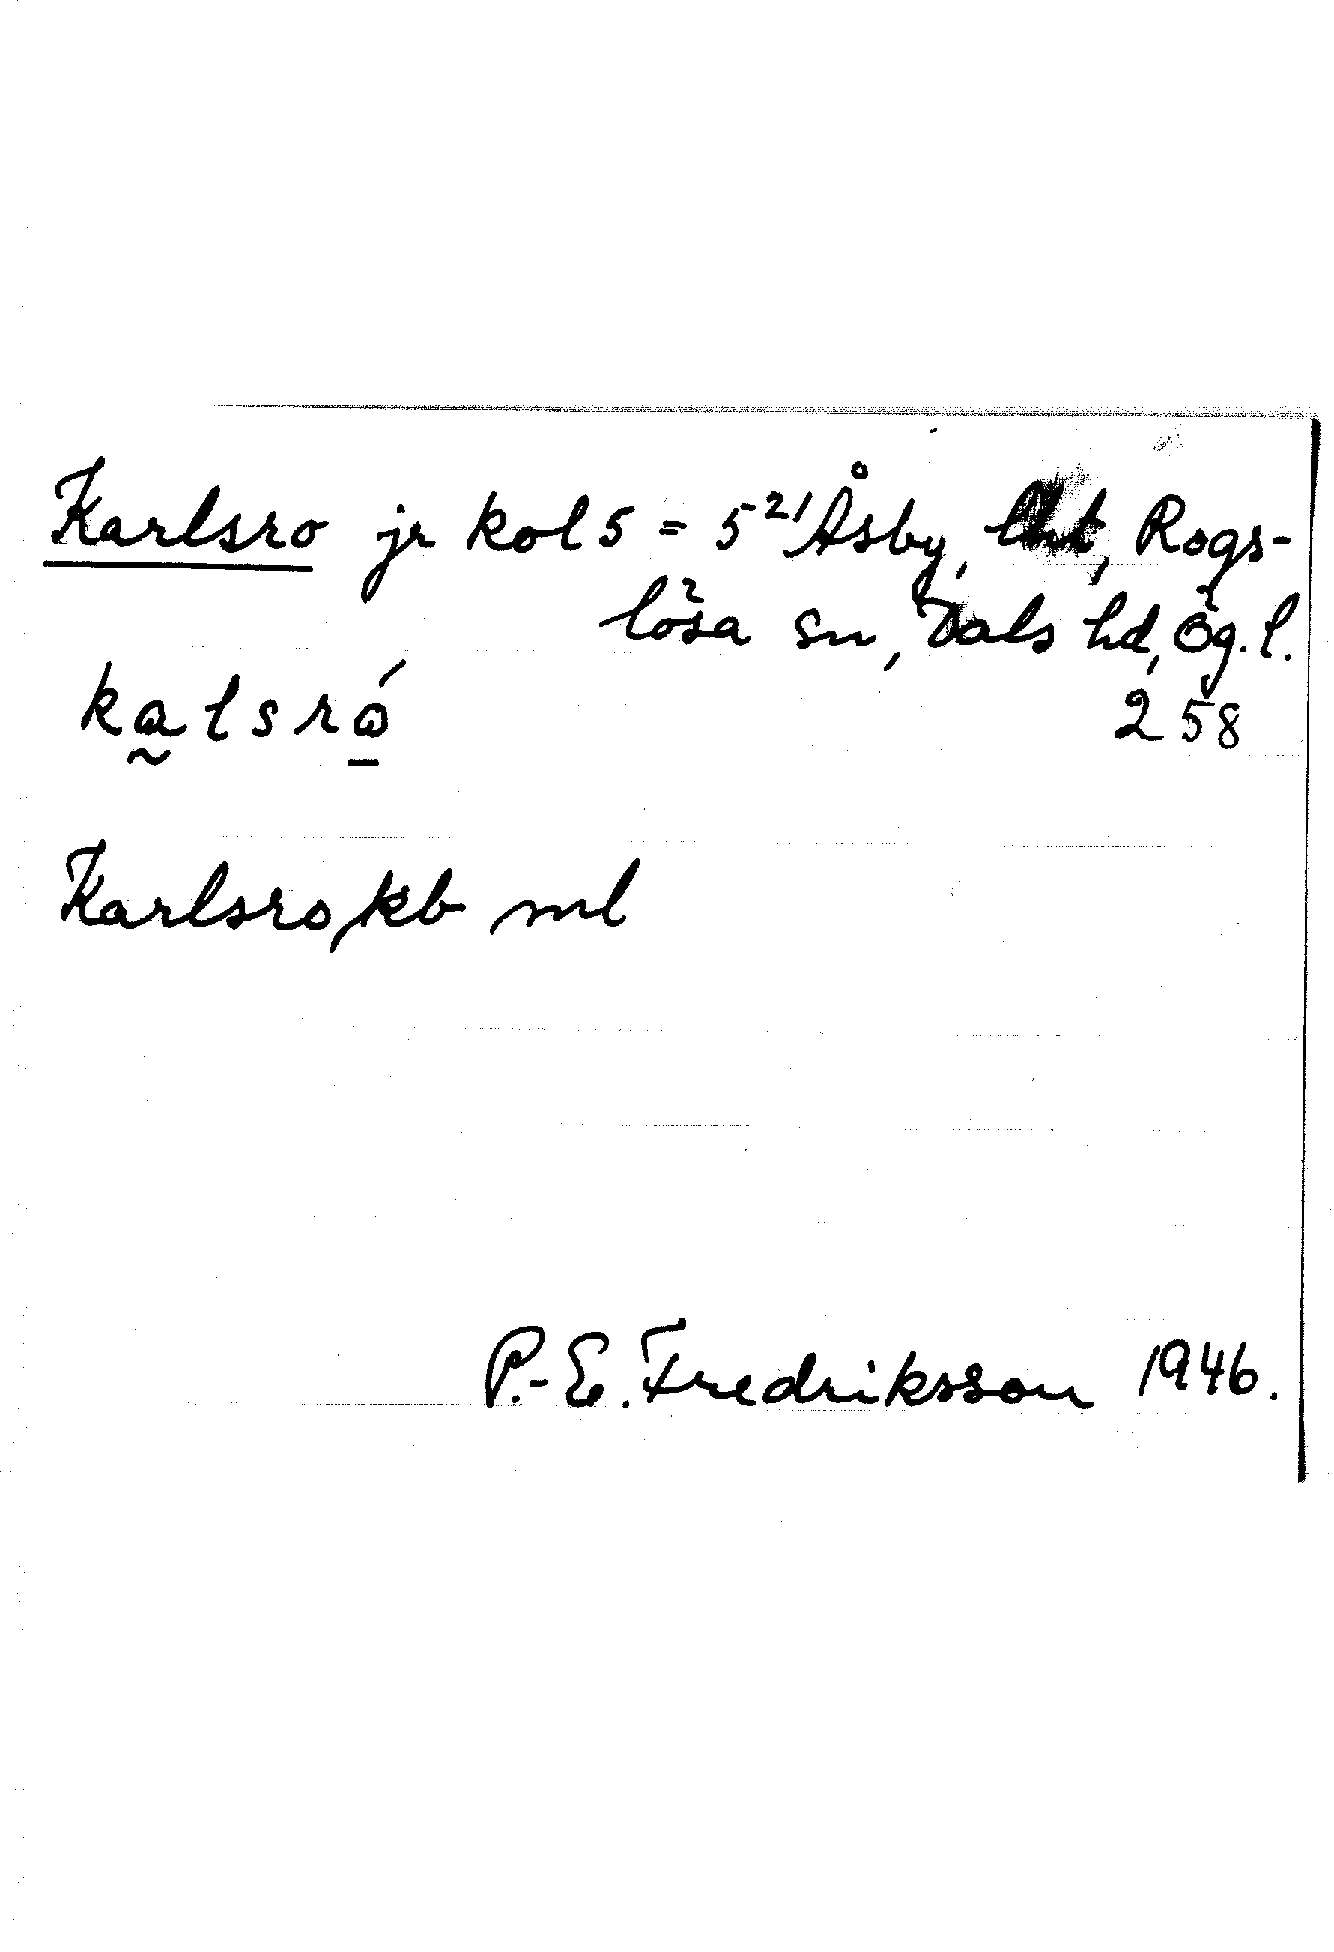 Karlsro jr kol 5 = 5²¹ Åsby, Rogs-
lösa sn, Dals hd, Ög. l.
kalsró 258
Karlsro, kb ml
P.-E. Fredriksson 1946.